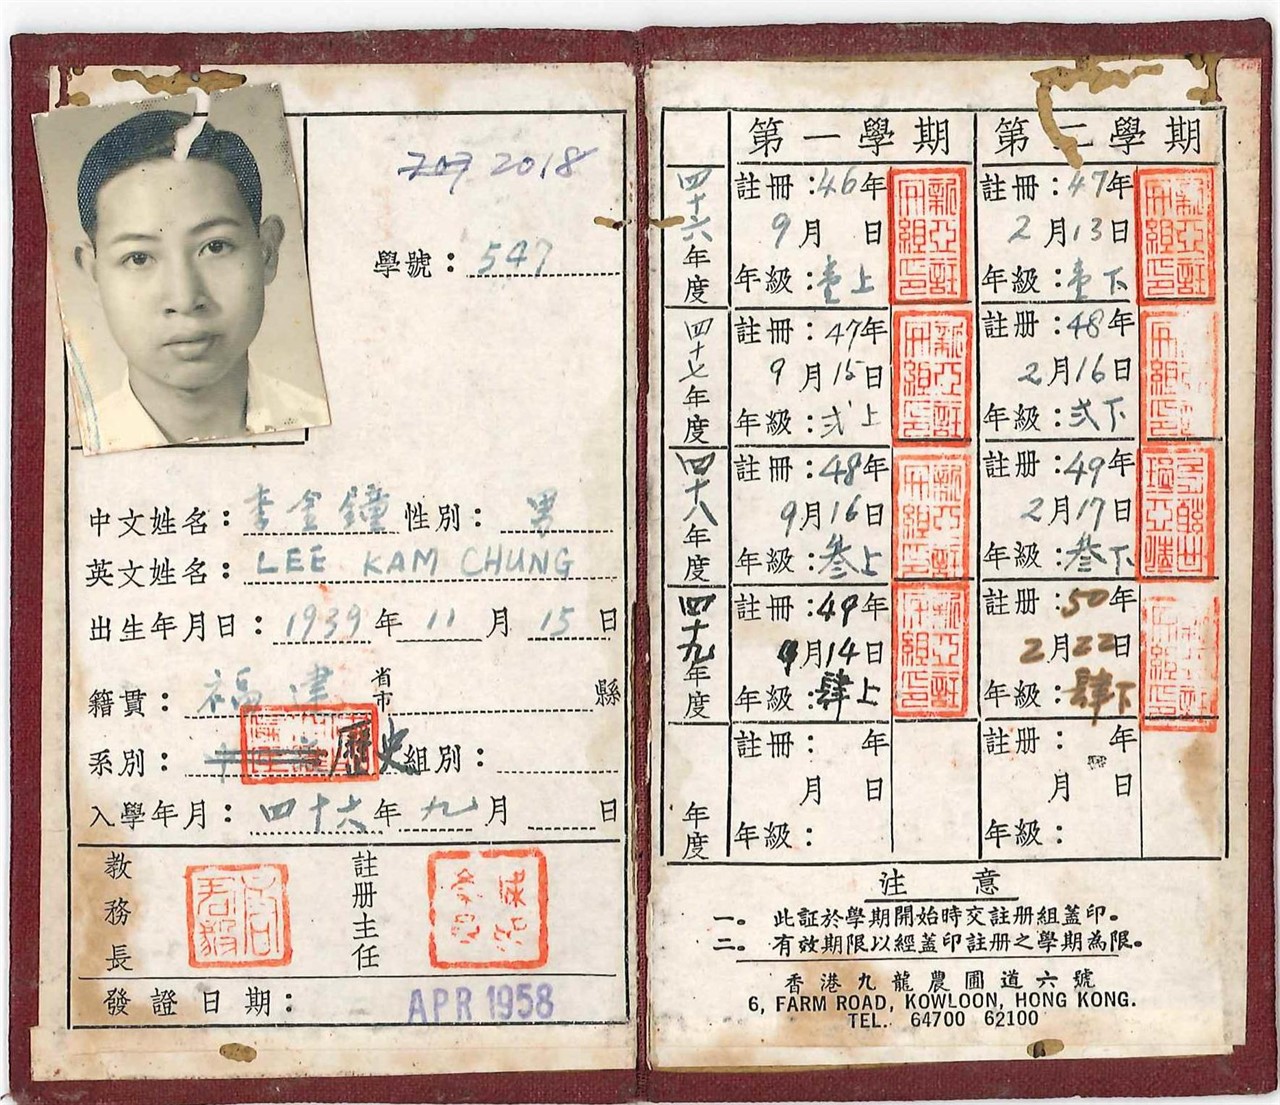 2018
學號：547
中文姓名：李金鐘 性別：男
英文姓名：LEE KAM CHUNG
出生年月日：1939年11月15日
籍貫：福建 省市 縣
系別：歷史 組別：
入學年月：四十六年九月 日
教務長 註册主任
發證日期：APR 1958
第一學期 第二學期
四十六年度
註冊：46年
9月 日
年級：壹上
註冊：47年
2月13日
年級：壹下
四十七年度
註冊：47年
9月15日
年級：弍上
註册：48年
2月16日
年級：弍下
四十八年度
註冊：48年
9月16日
年級：叁上
註册：49年
2月17日
年級：叁下
四十九年度
註冊：49年
9月14日
年級：肆上
註册：50年
2月22日
年級：肆下
年度
註冊： 年
月 日
年級：
註册： 年
月 日
年級：
注意
一。此証於學期開始時交註册組蓋印。
二。有效期限以經蓋印註册之學期為限。
香港九龍農圃道六號
6, FARM ROAD, KOWLOON, HONG KONG.
TEL. 64700 62100